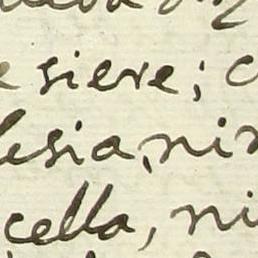 e siere; c
lesia, nin
cella, ni